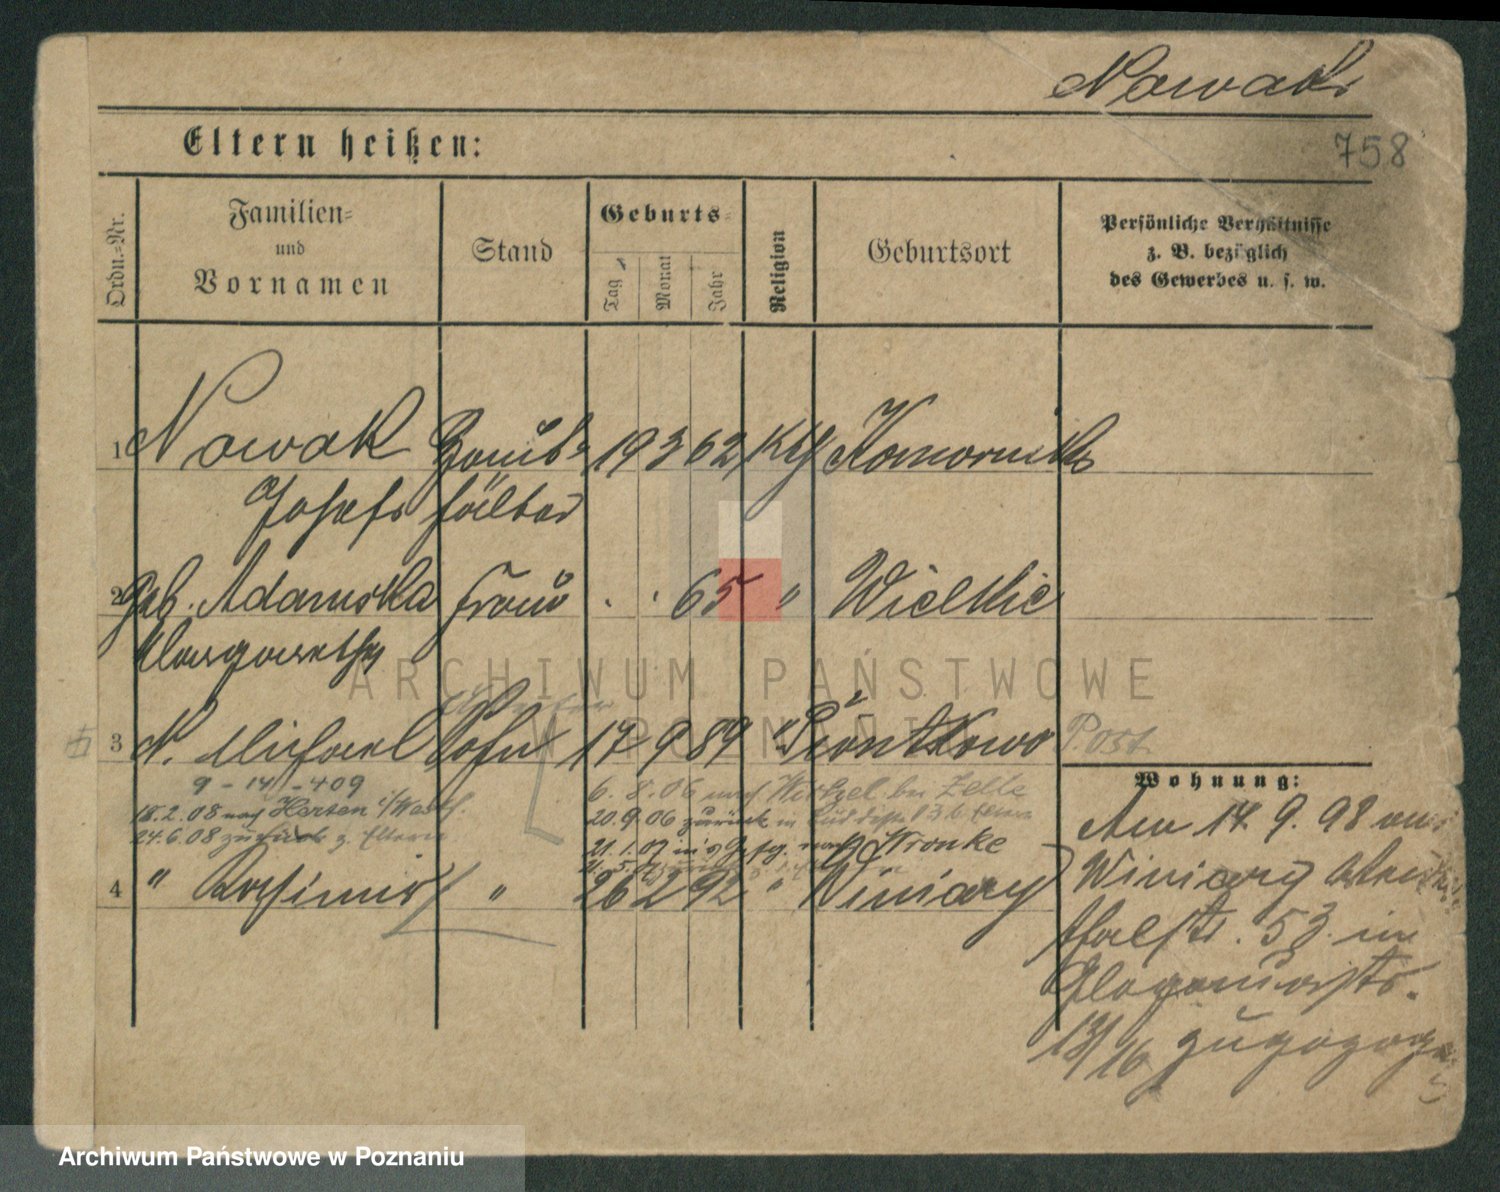 Nowak
Eltern heißen:
758
Ordn.-Nr.
Familien-
und
Vornamen
Stand
Geburts-
Tag
Monat
Jahr
Religion
Geburtsort
Persönliche Verhältnisse
z. B. bezüglich
des Gewerbes u. s. w.
1 Nowak 19 3 62 Kth Komornik
Josef
2 geb. Adamska Frau . . 65 " Wielkie
Margarethe
ARCHIWUM PAŃSTWOWE
W POZNANIU
3 N. Michael Sohn 17 9 89 " Piontkowo Post
9 - 14 - 409
18.2.08 nach Herten i/Westf.
24.6.08 zurück z. Eltern
6.8.06 nach bei Zelle
20.9.06 zurück in
21.1.07 in's Gefg. nach Wronke
4 " Kasimir " 26 2 92 " Winiary
Wohnung:
Am 14. 9. 98 von
Winiary
53 in
Glogauerstr.
13/16 zugezogen
Archiwum Państwowe w Poznaniu